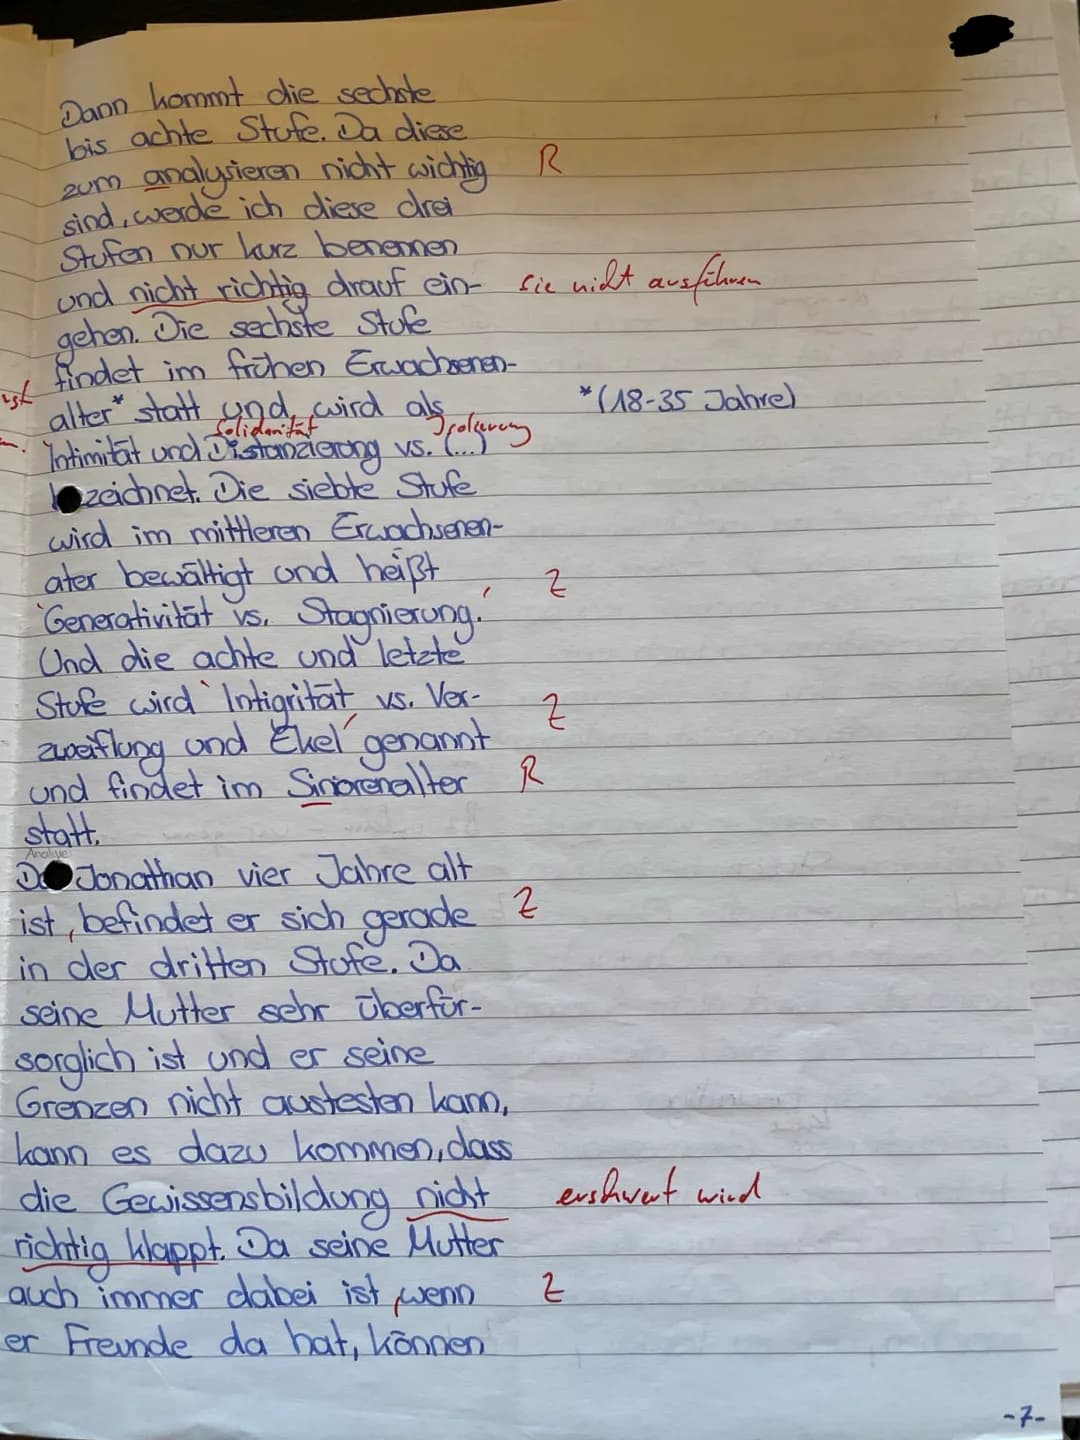 Dann kommt die sechste
bis achte Stufe. Da diese
zum analysieren nicht wichtig R
sind, werde ich diese drei
Stufen nur kurz benennen
und nicht richtig drauf ein- sie nicht ausführen
gehen. Die sechste Stufe
findet im frühen Erwachsenen-
alter* statt und, wird als *(18-35 Jahre)
Solidarität Isolierung
Intimität und Distanzierung vs. (...)
zeichnet. Die siebte Stufe
wird im mittleren Erwachsenen-
ater bewältigt und heißt Z
'Generativität vs. Stagnierung.'
Und die achte und letzte
Stufe wird 'Intigrität vs. Ver- Z
zweiflung und Ekel' genannt
und findet im Siniorenalter R
statt.
Analyse
Jonathan vier Jahre alt
ist, befindet er sich gerade Z
in der dritten Stufe. Da
seine Mutter sehr überfür-
sorglich ist und er seine
Grenzen nicht austesten kann,
kann es dazu kommen, dass
die Gewissensbildung nicht erschwert wird
richtig klappt. Da seine Mutter
auch immer dabei ist, wenn Z
er Freunde da hat, können
-7-